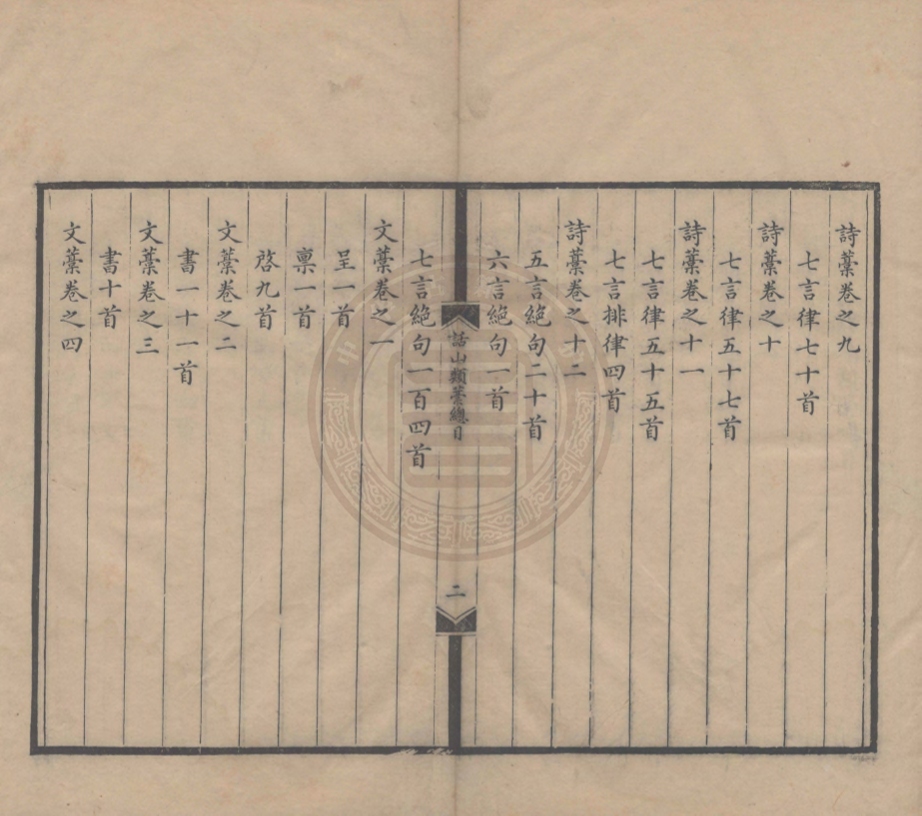 詩藳卷之九
七言律七十首
詩藳卷之十
七言律五十七首
詩藳卷之十一
七言律五十五首
七言排律四首
詩藳卷之十二
五言絕句二十首
六言絕句一首
話山類藳總目
二
七言絕句一百四首
文藳卷之一
呈一首
稟一首
啓九首
文藳卷之二
書一十一首
文藳卷之三
書十首
文藳卷之四